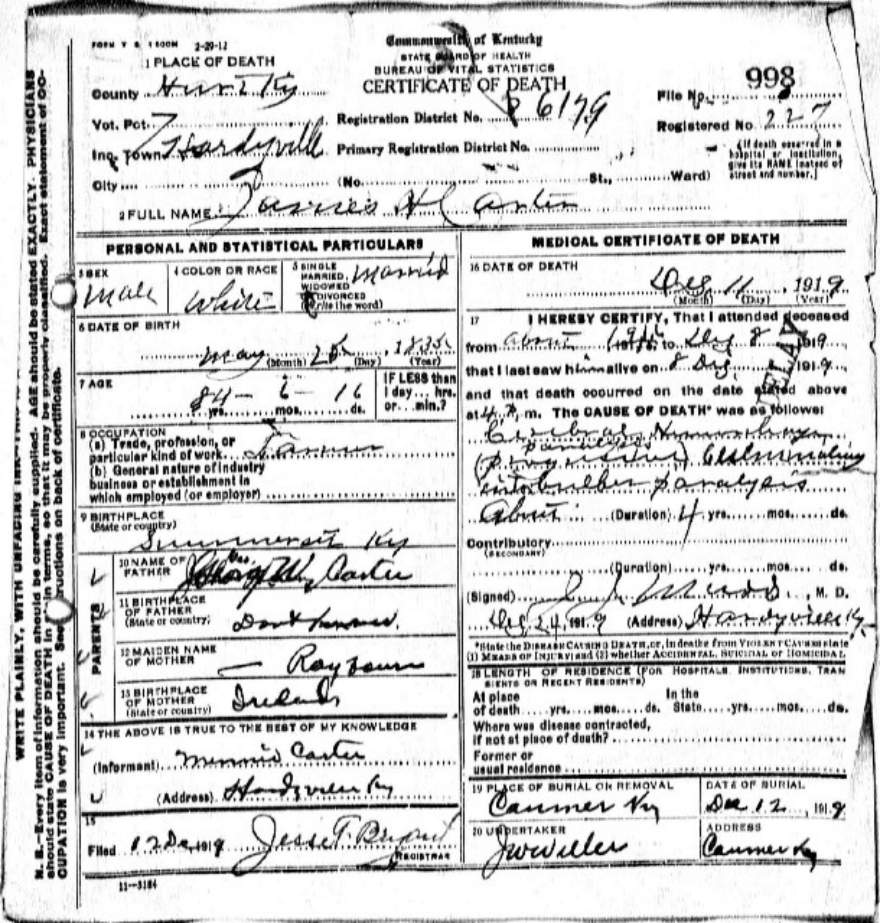 FORM V S 1 500M 2-29-12
Commonwealth of Kentucky
STATE BOARD OF HEALTH
BUREAU OF VITAL STATISTICS
CERTIFICATE OF DEATH
998
1 PLACE OF DEATH
County Hart Ky
File No.
Vot. Pct. 7
Registration District No. 6179
Registered No 227
Inc. Town Hardyville
Primary Registration District No.
(If death occurred in a hospital or institution, give its NAME instead of street and number.)
City (No. St., Ward)
2 FULL NAME James H Carter
PERSONAL AND STATISTICAL PARTICULARS
3 SEX
Male
4 COLOR OR RACE
White
5 SINGLE MARRIED, WIDOWED OR DIVORCED (Write the word)
Married
6 DATE OF BIRTH
May 25 1835
(Month) (Day) (Year)
7 AGE
84 - 6 - 16
yrs. mos. ds.
IF LESS than
1 day... hrs.
or... min.?
8 OCCUPATION
(a) Trade, profession, or
particular kind of work Farmer
(b) General nature of industry
business or establishment in
which employed (or employer)
9 BIRTHPLACE
(State or country)
Summersett Ky
PARENTS
10 NAME OF
FATHER Carter
11 BIRTHPLACE
OF FATHER
(State or country) Dont know
12 MAIDEN NAME
OF MOTHER — Raybourn
13 BIRTHPLACE
OF MOTHER
(State or country) Ireland
14 THE ABOVE IS TRUE TO THE BEST OF MY KNOWLEDGE
(Informant) Minnie Carter
(Address) Hardyville Ky
15
Filed 12 De 1919 Jesse T Bryant
REGISTRAR
11-3184
MEDICAL CERTIFICATE OF DEATH
16 DATE OF DEATH
Dec 11, 1919
(Month) (Day) (Year)
17 I HEREBY CERTIFY, That I attended deceased
from about 191 to Dec 8 1919
that I last saw him alive on 8 Dec, 1919
and that death occurred on the date stated above
at 4 m. The CAUSE OF DEATH* was as follows:
Cerebral Hemorrhage
paralysis
(progressive) culminating
into bulbar paralysis
About (Duration) 4 yrs. mos. ds.
Contributory
(SECONDARY)
(Duration) yrs. mos. ds.
(Signed) , M. D.
Dec 24, 1919 (Address) Hardyville Ky
*State the DISEASE CAUSING DEATH, or, in deaths from VIOLENT CAUSES state
(1) MEANS OF INJURY and (2) whether ACCIDENTAL, SUICIDAL or HOMICIDAL.
18 LENGTH OF RESIDENCE (FOR HOSPITALS, INSTITUTIONS, TRAN
SIENTS OR RECENT RESIDENTS)
At place In the
of death yrs. mos. ds. State yrs. mos. ds.
Where was disease contracted,
if not at place of death?
Former or
usual residence
19 PLACE OF BURIAL OR REMOVAL
Canmer Ky
DATE OF BURIAL
Dec 12, 1919
20 UNDERTAKER
ADDRESS
Canmer Ky
WRITE PLAINLY, WITH UNFADING INK—THIS IS A
N. B.—Every item of information should be carefully supplied. AGE should be stated EXACTLY. PHYSICIANS
should state CAUSE OF DEATH in terms, so that it may be properly classified. Exact statement of OC-
CUPATION is very important. See instructions on back of certificate.